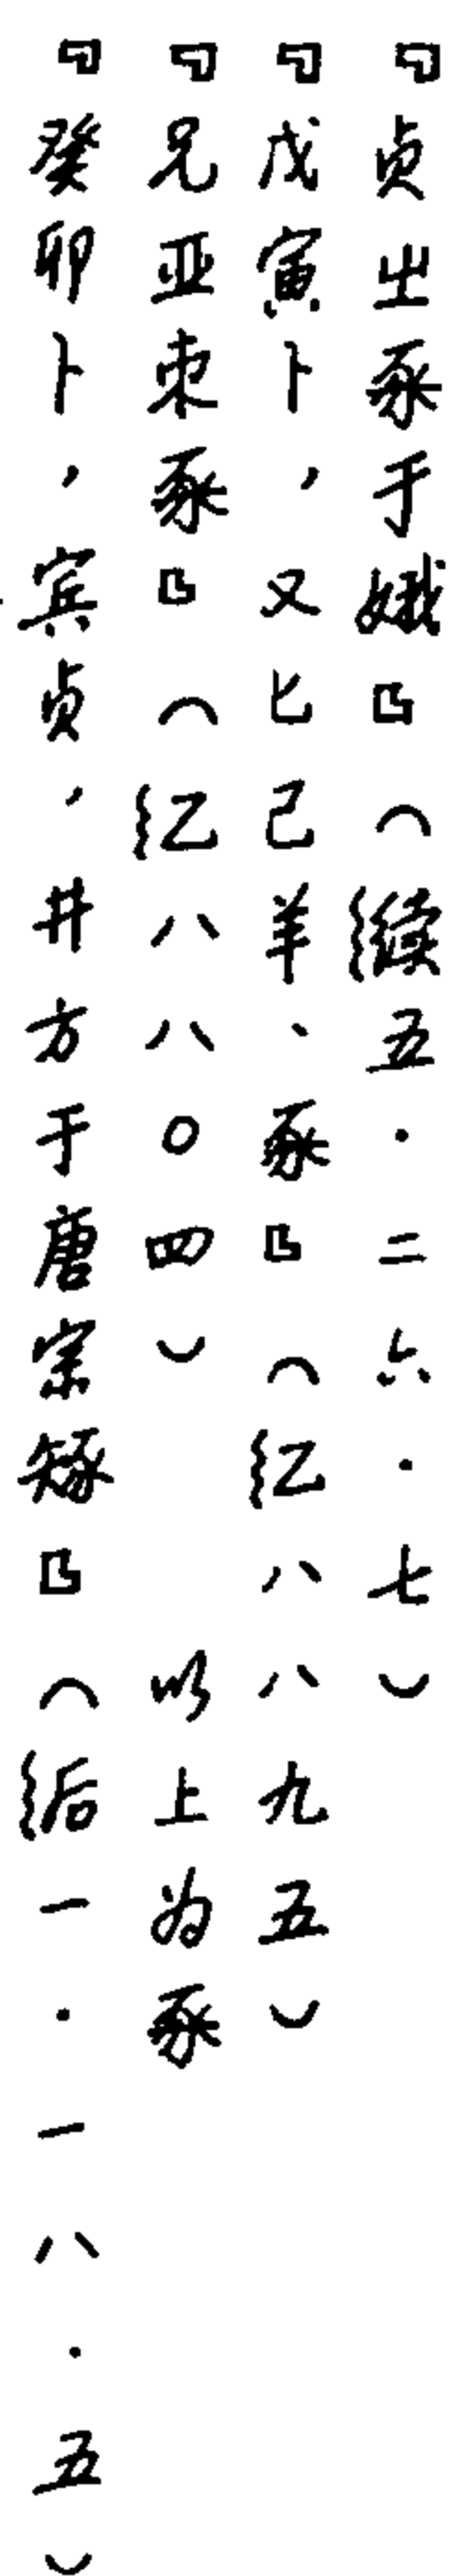 『贞㞢豖于娥』(续五·二六·七)
『戊寅卜,又匕己羊、豖』(乙八八九五)
『兄亚束豖』(乙八八〇四) 以上为豖
『癸卯卜,宾贞,井方于唐宗』(后一·一八·五)